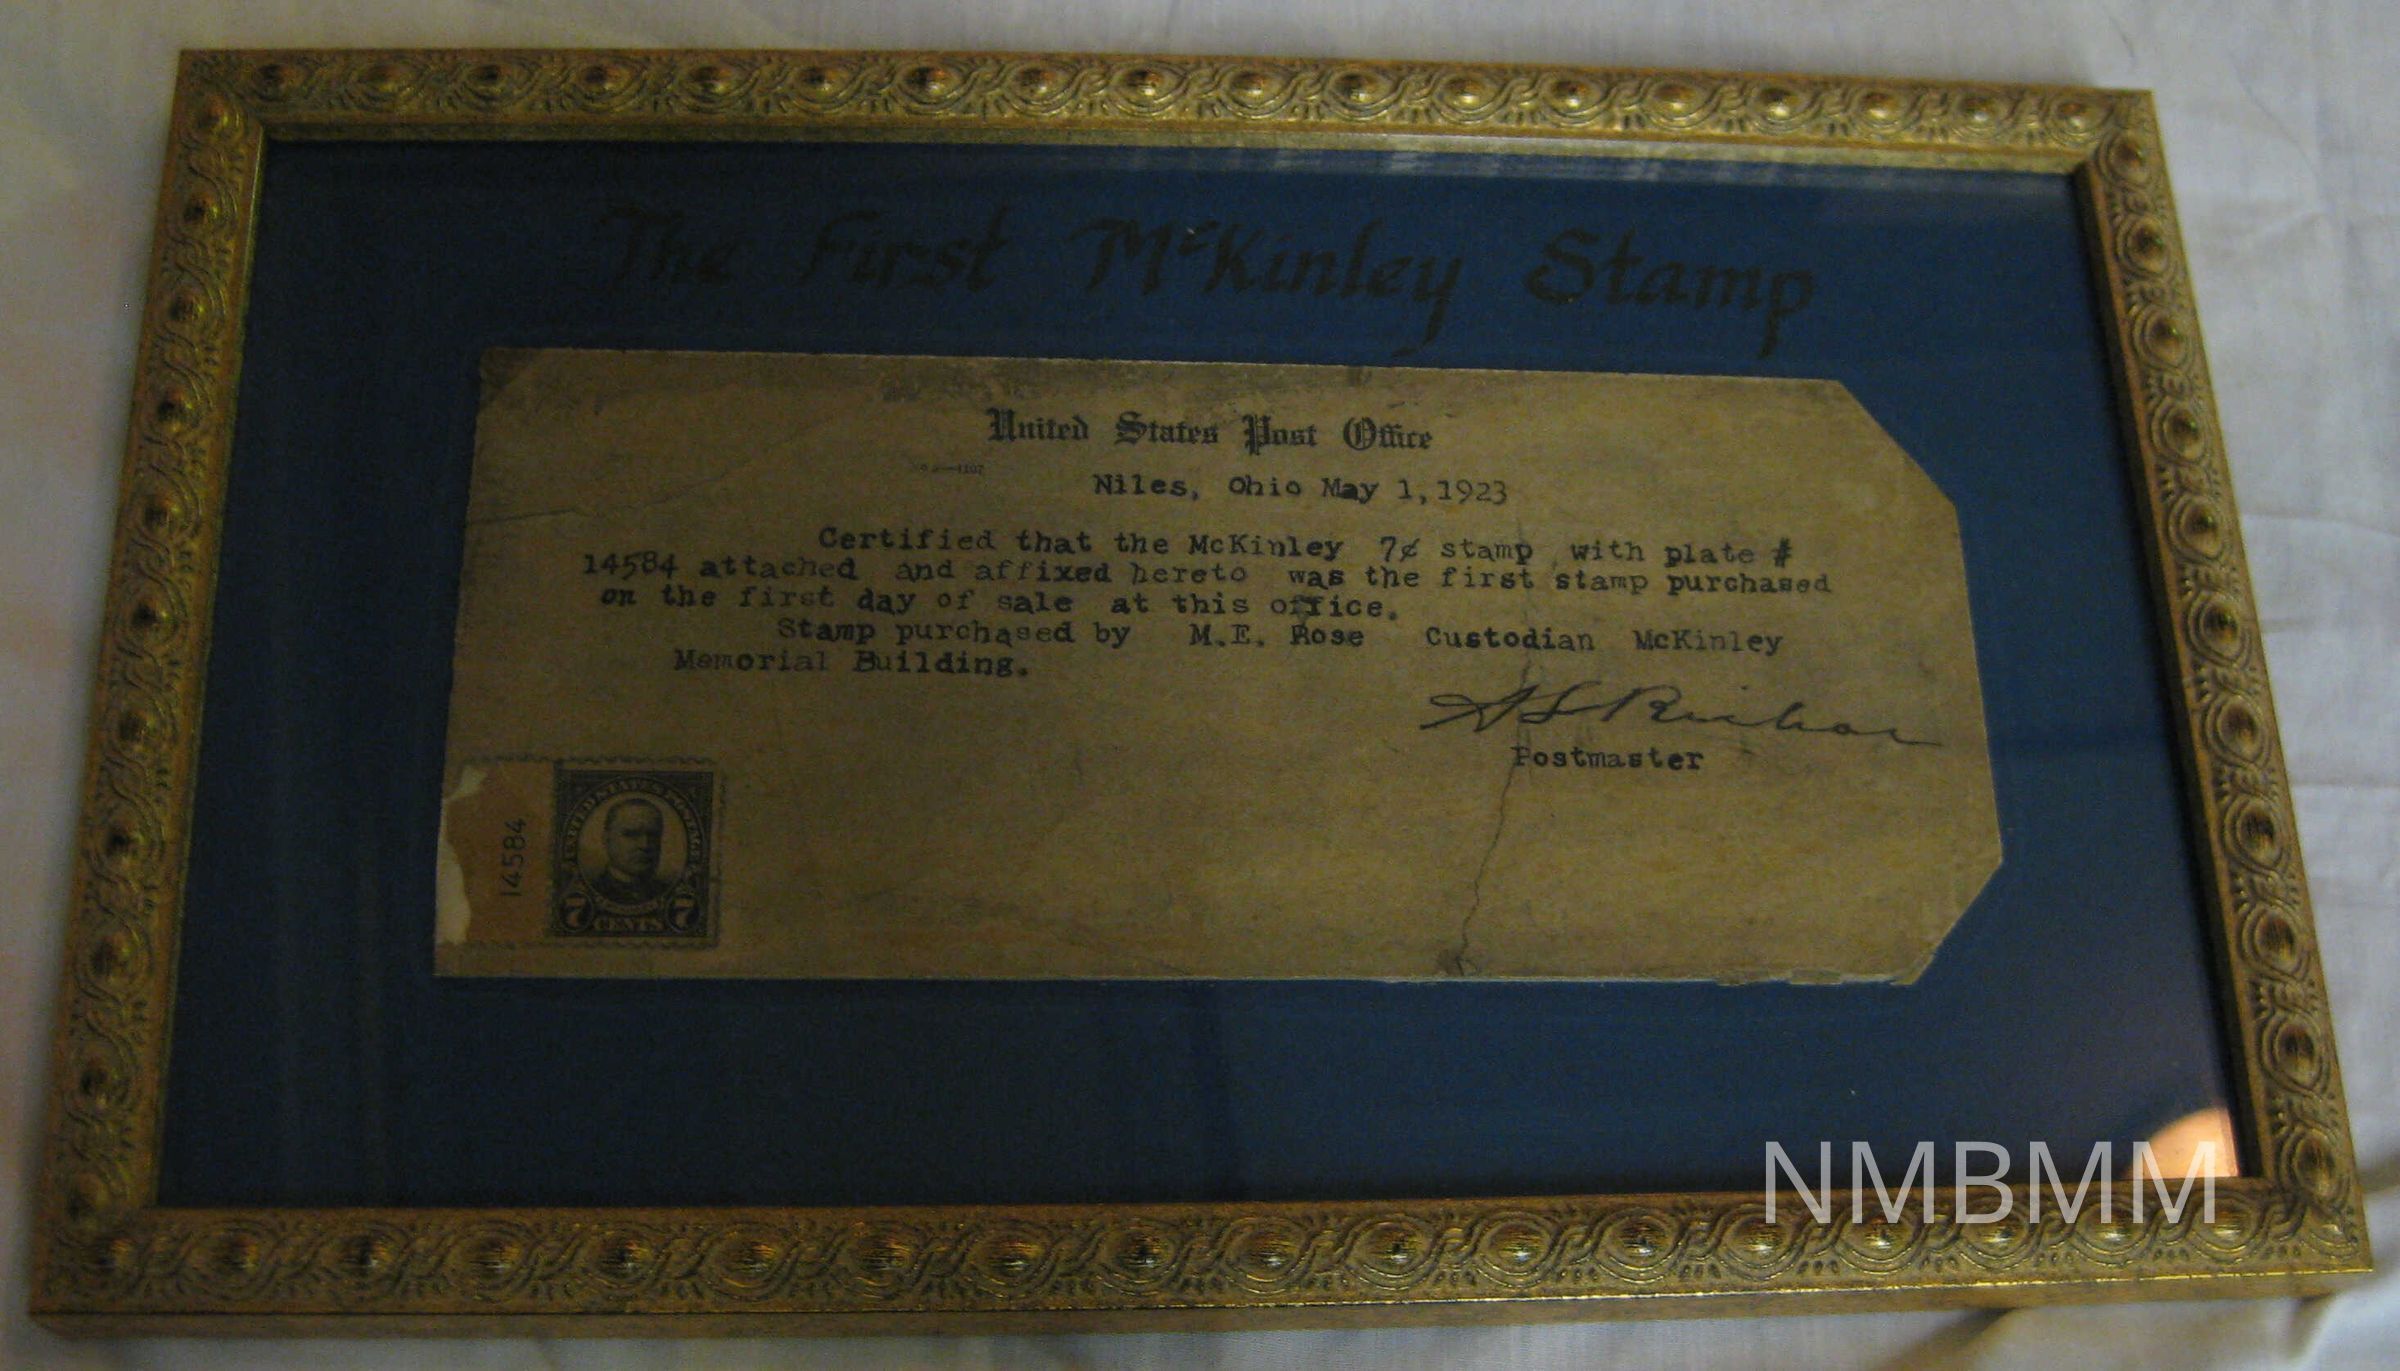 The First McKinley Stamp
United States Post Office
Niles, Ohio May 1,1923
Certified that the McKinley 7¢ stamp with plate #
14584 attached and affixed hereto was the first stamp purchased
on the first day of sale at this office.
Stamp purchased by M.E. Rose Custodian McKinley
Memorial Building.
Postmaster
14584
UNITED STATES POSTAGE
7 CENTS 7
NMBMM